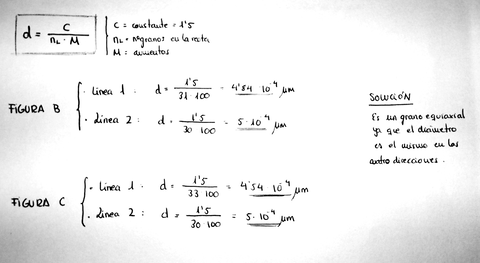 d = C / n_L · M
C = constante = 1'5
n_L = nº granos en la recta
M = aumentos
FIGURA B
· Linea 1 : d = 1'5 / 31·100 = 4'84 · 10⁻⁴ μm
· Linea 2 : d = 1'5 / 30·100 = 5·10⁻⁴ μm
SOLUCIÓN
Es un grano equiaxial
ya que el diámetro
es el mismo en las
cuatro direcciones.
FIGURA C
· Linea 1 : d = 1'5 / 33·100 = 4'54 · 10⁻⁴ μm
· Linea 2 : d = 1'5 / 30·100 = 5·10⁻⁴ μm